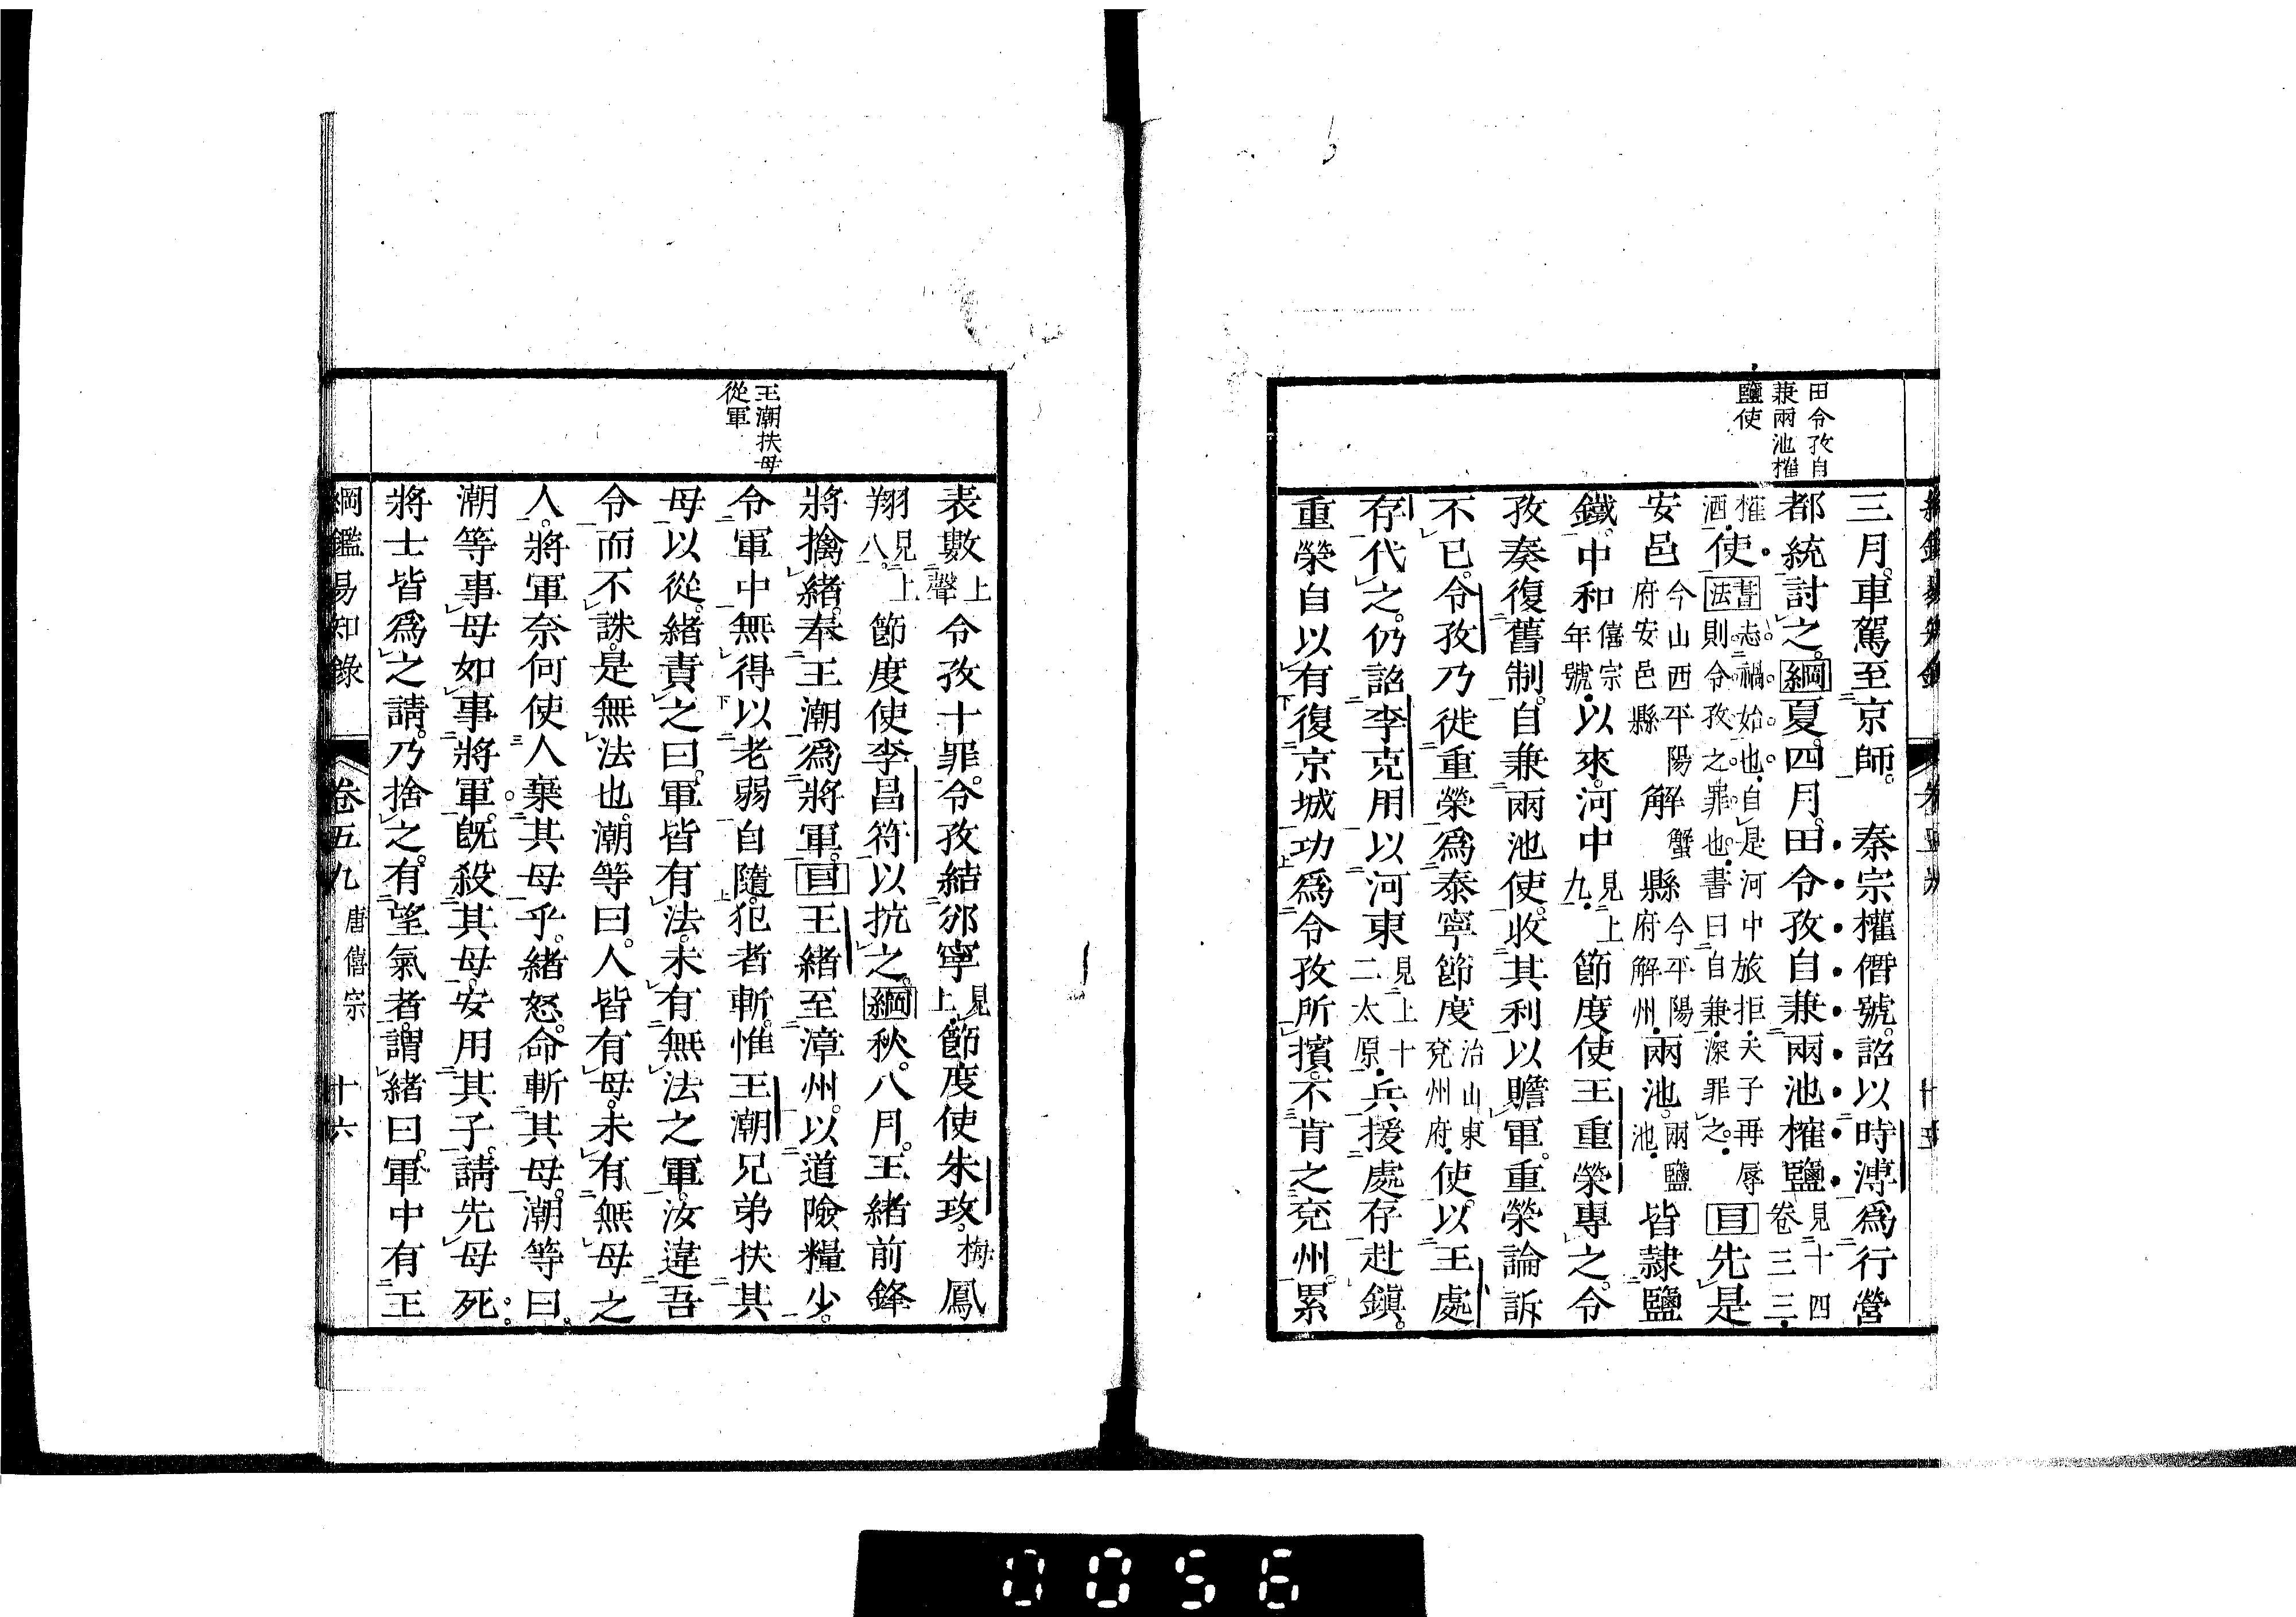 田令孜自
兼兩池榷
鹽使
三月。車駕至京師。　秦宗權僭號。詔以時溥爲行營
都統討之。綱夏。四月。田令孜自兼兩池榷鹽見十四卷三三
榷酒使書法書志禍始也。自是河中旅拒。天子再辱則令孜之罪也。書曰自兼。深罪之。目先是
安邑今山西平陽府安邑縣解蟹縣今平陽府解州兩池。兩鹽池皆隷鹽
鐵。中和僖宗年號以來。河中見上九節度使王重榮專之。令
孜奏復舊制。自兼兩池使。收其利以贍軍。重榮論訴
不已。令孜乃徙重榮爲泰寧節度治山東兗州府使。以王處
存代之。仍詔李克用以河東見上十二太原兵援處存赴鎭。
重榮自以有復京城功爲令孜所擯。不肯之兗州。累
王潮扶母
從軍
表數上聲令孜十罪。令孜結邠寧見上節度使朱玫。梅鳳
翔見上八節度使李昌符以抗之。綱秋。八月。王緒前鋒
將擒緒。奉王潮爲將軍。目王緒至漳州。以道險糧少。
令軍中無得以老弱自隨。犯者斬。惟王潮兄弟扶其
母以從。緒責之曰。軍皆有法。未有無法之軍。汝違吾
令而不誅。是無法也。潮等曰。人皆有母。未有無母之
人。將軍奈何使人棄其母乎。緒怒。命斬其母。潮等曰。
潮等事母如事將軍。旣殺其母。安用其子。請先母死。
將士皆爲之請。乃捨之。有望氣者。謂緒曰。軍中有王
綱鑑易知錄　卷五九　唐僖宗　十六
0056